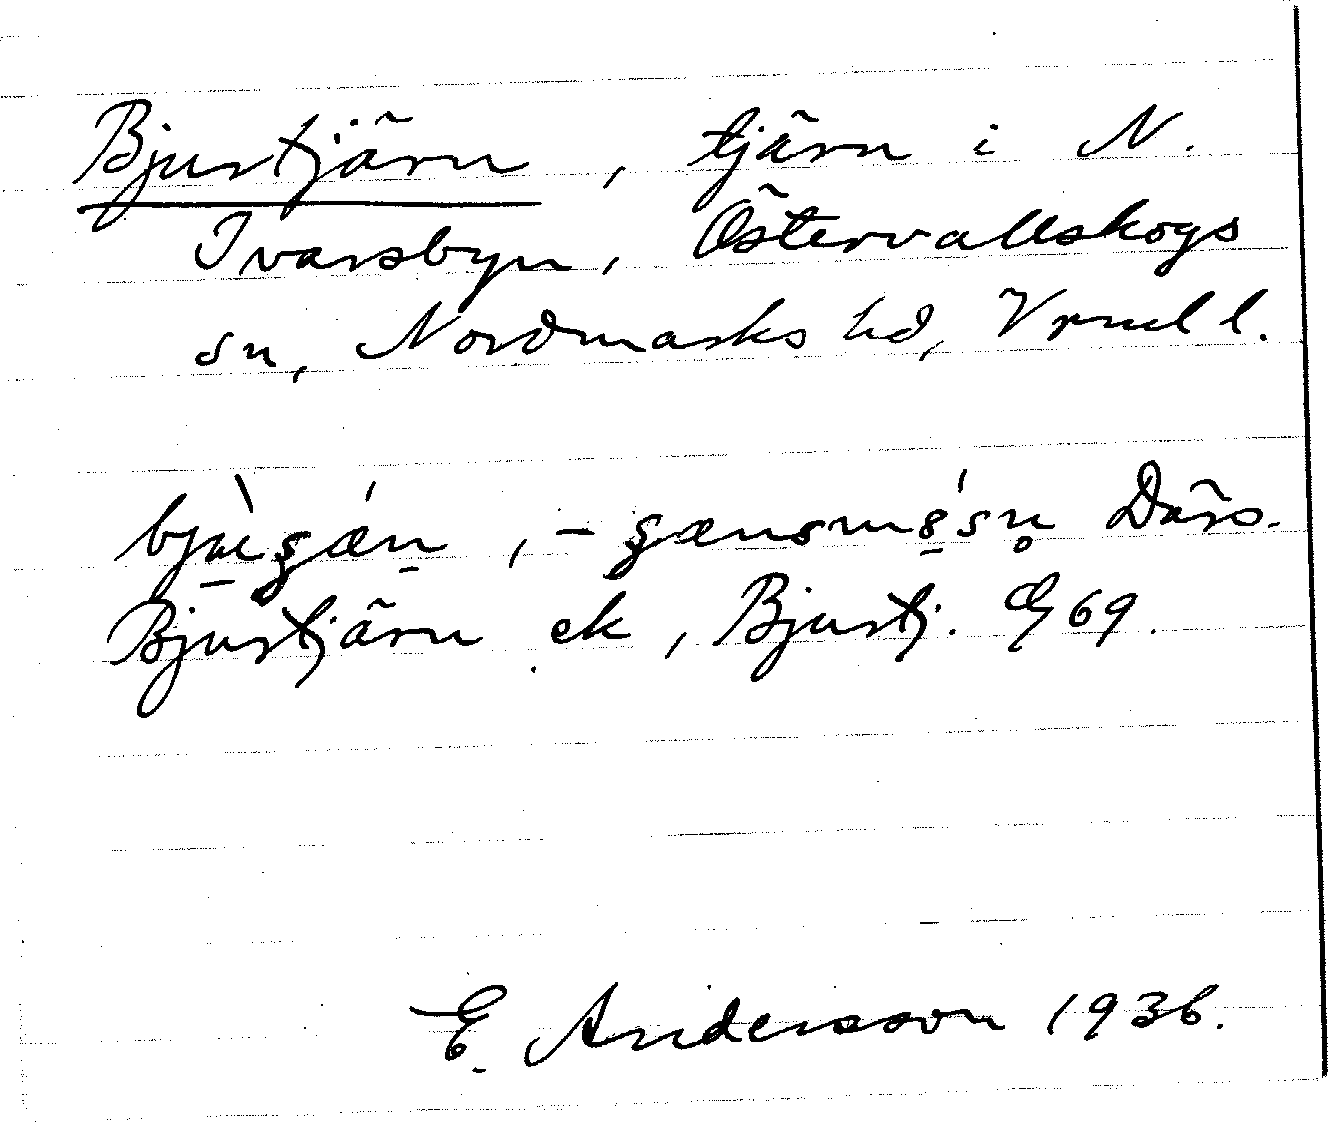 Bjurtjärn, tjärn i N.
Ivarsbyn, Östervallskogs
sn, Nordmarks hd, Vrml l.
Bjurtjärn ek, Bjurtj. G 69.
E. Andersson 1936.